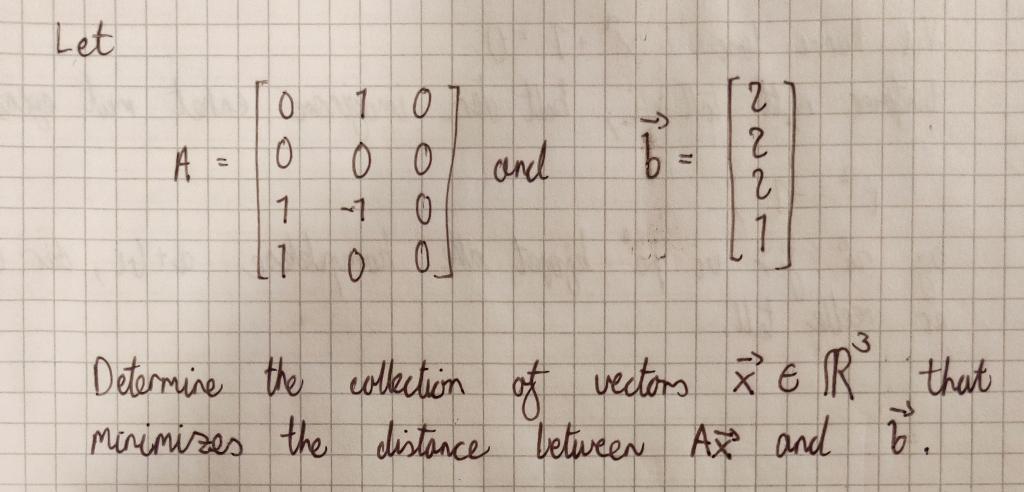 Let
A = [0 1 0; 0 0 0; 1 -1 0; 1 0 0] and b⃗ = [2; 2; 2; 1]
Determine the collection of vectors x⃗ ∈ ℝ³ that
minimizes the distance between Ax⃗ and b⃗.